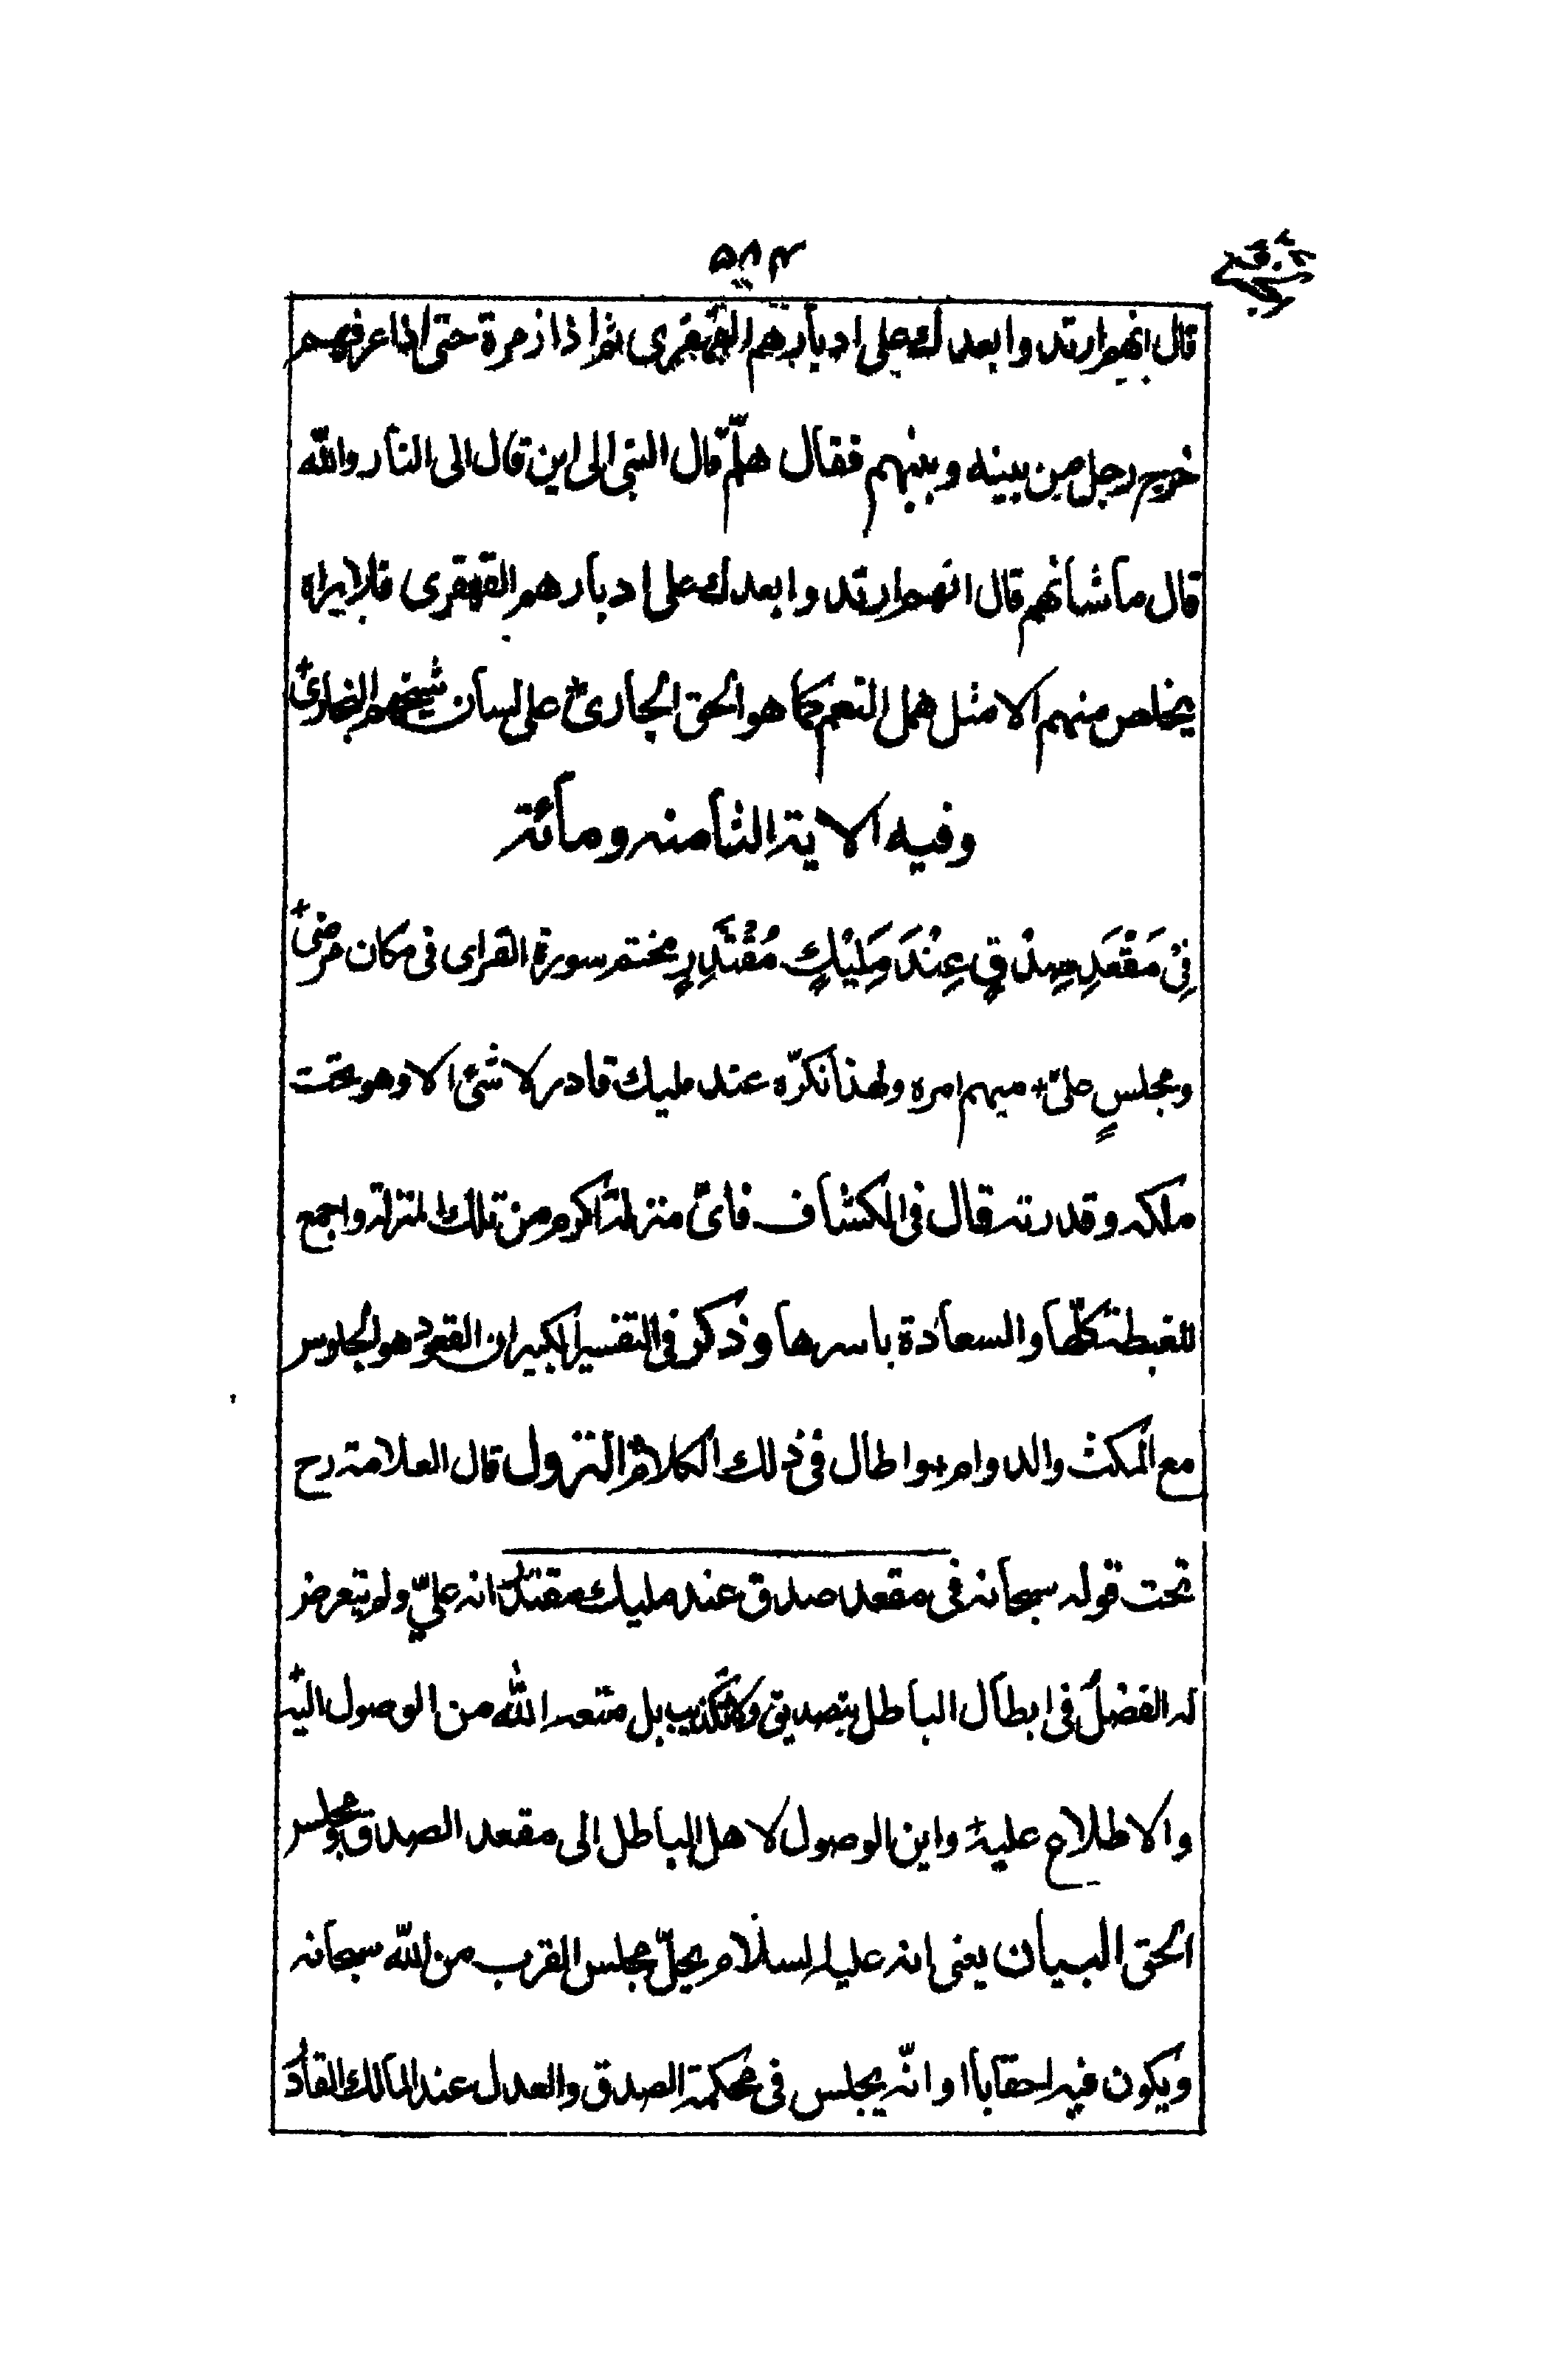 ۵۸۴
قال انهم ارتدوا بعدك على ادبارهم القهقرى ثم اذا زمرة حتى اذا عرفهم
خرج رجل من بينه وبينهم فقال هلمّ قال النبى الى اين قال الى النار والله
قال ما شانهم قال انهم ارتدوا بعدك على ادبارهم القهقرى فلا يراه
يخلص منهم الا مثل همل النعم كما هو الحق الجارى على لسان شيخهم البخارى
وفيه الاية الثامنه ومائة
فِىْ مَقْعَدِ صِدْقٍ عِنْدَ مَلِيْكٍ مُقْتَدِرٍ مختم سورة القمر اى فى مكان مرضى
ومجلسٍ علىّ مبهم امره ولهذا نكرّه عند مليك قادر لا شئ الا وهو تحت
ملكه وقدرته قال فى الكشاف فاىّ منزلة اكرم من تلك المنزلة واجمع
للغبطة كلّها والسعادة باسرها وذكر فى التفسير الكبير ان القعود هو الجلوس
مع المكث والدوام واطال فى ذلك الكلام النزول قال العلامة رح
تحت قوله سبحانه فى مقعد صدق عند مليك مقتدر انه علىّ ولم يتعرض
له الفضل فى ابطال الباطل بتصديق ولا تكذيب بل منعه الله من الوصول اليه
والاطلاع عليه واين الوصول لاهل الباطل الى مقعد الصدق ومجلس
الحق البيان يعنى انه عليه السلام يحلّ مجلس القرب من الله سبحانه
ويكون فيه احقابا وانّه يجلس فى محكمة الصدق والعدل عند المالك القادر